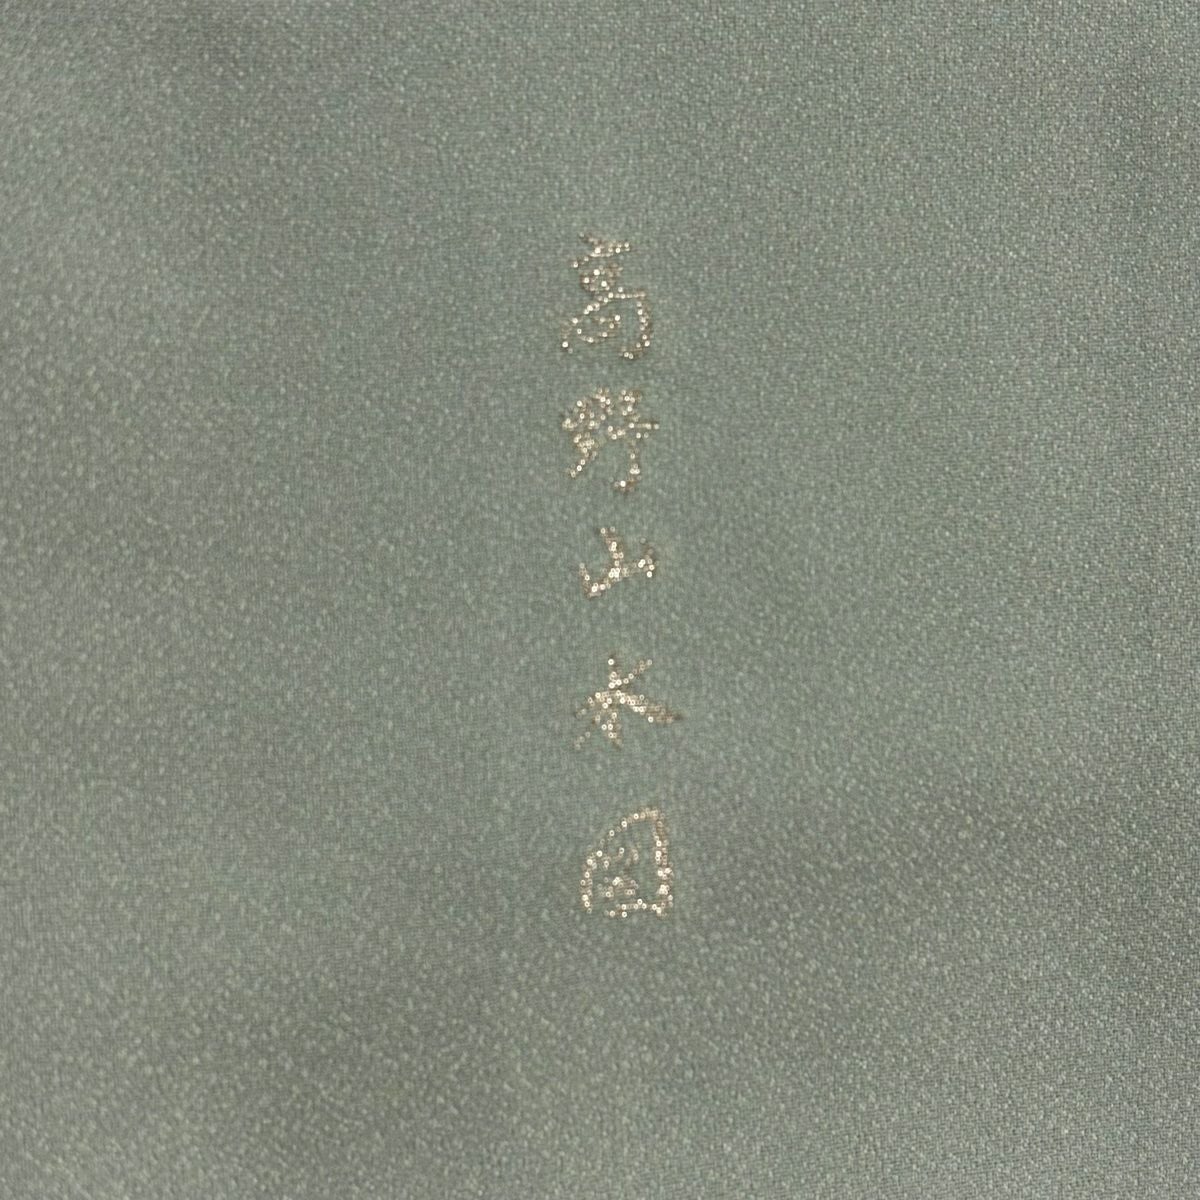 高野山水図